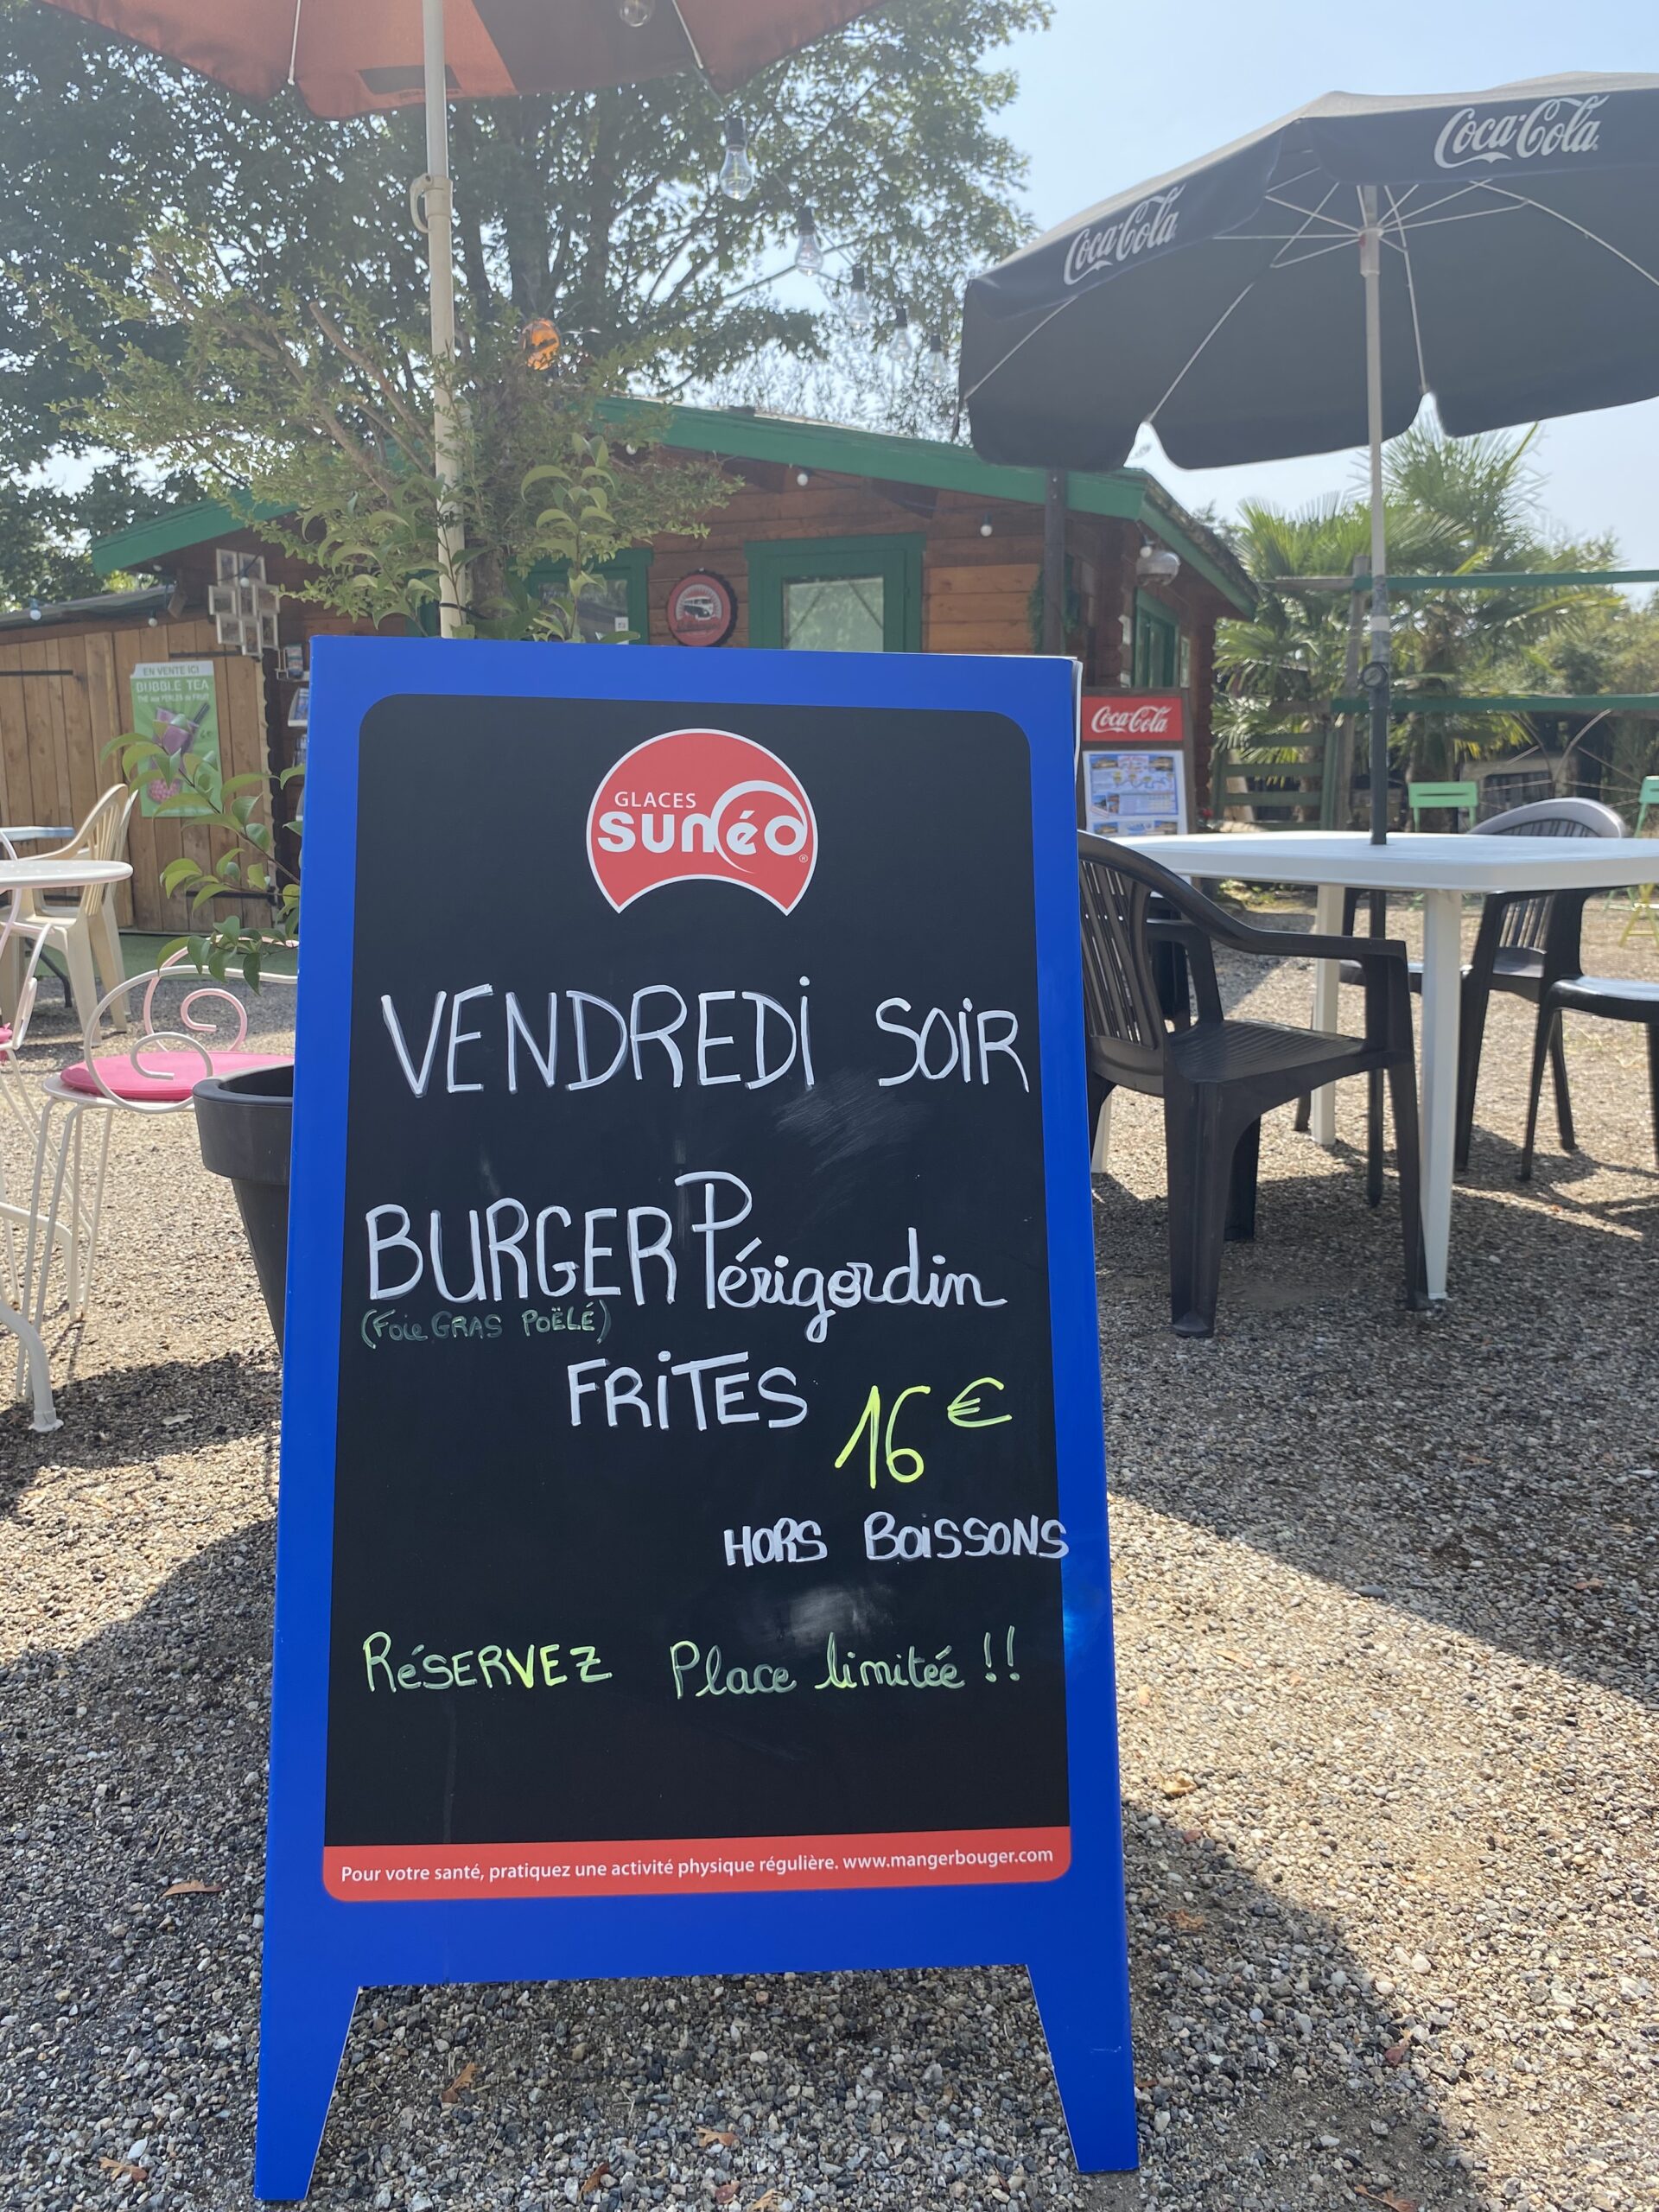 Coca-Cola
Coca-Cola
EN VENTE ICI
BUBBLE TEA
THÉ aux PERLES de FRUIT
Coca-Cola
GLACES
sunéo
VENDREDI SOIR
BURGER Périgordin
(Foie GRAS POËLÉ)
FRITES 16€
HORS BOISSONS
RéSERVEZ Place limitée !!
Pour votre santé, pratiquez une activité physique régulière. www.mangerbouger.com